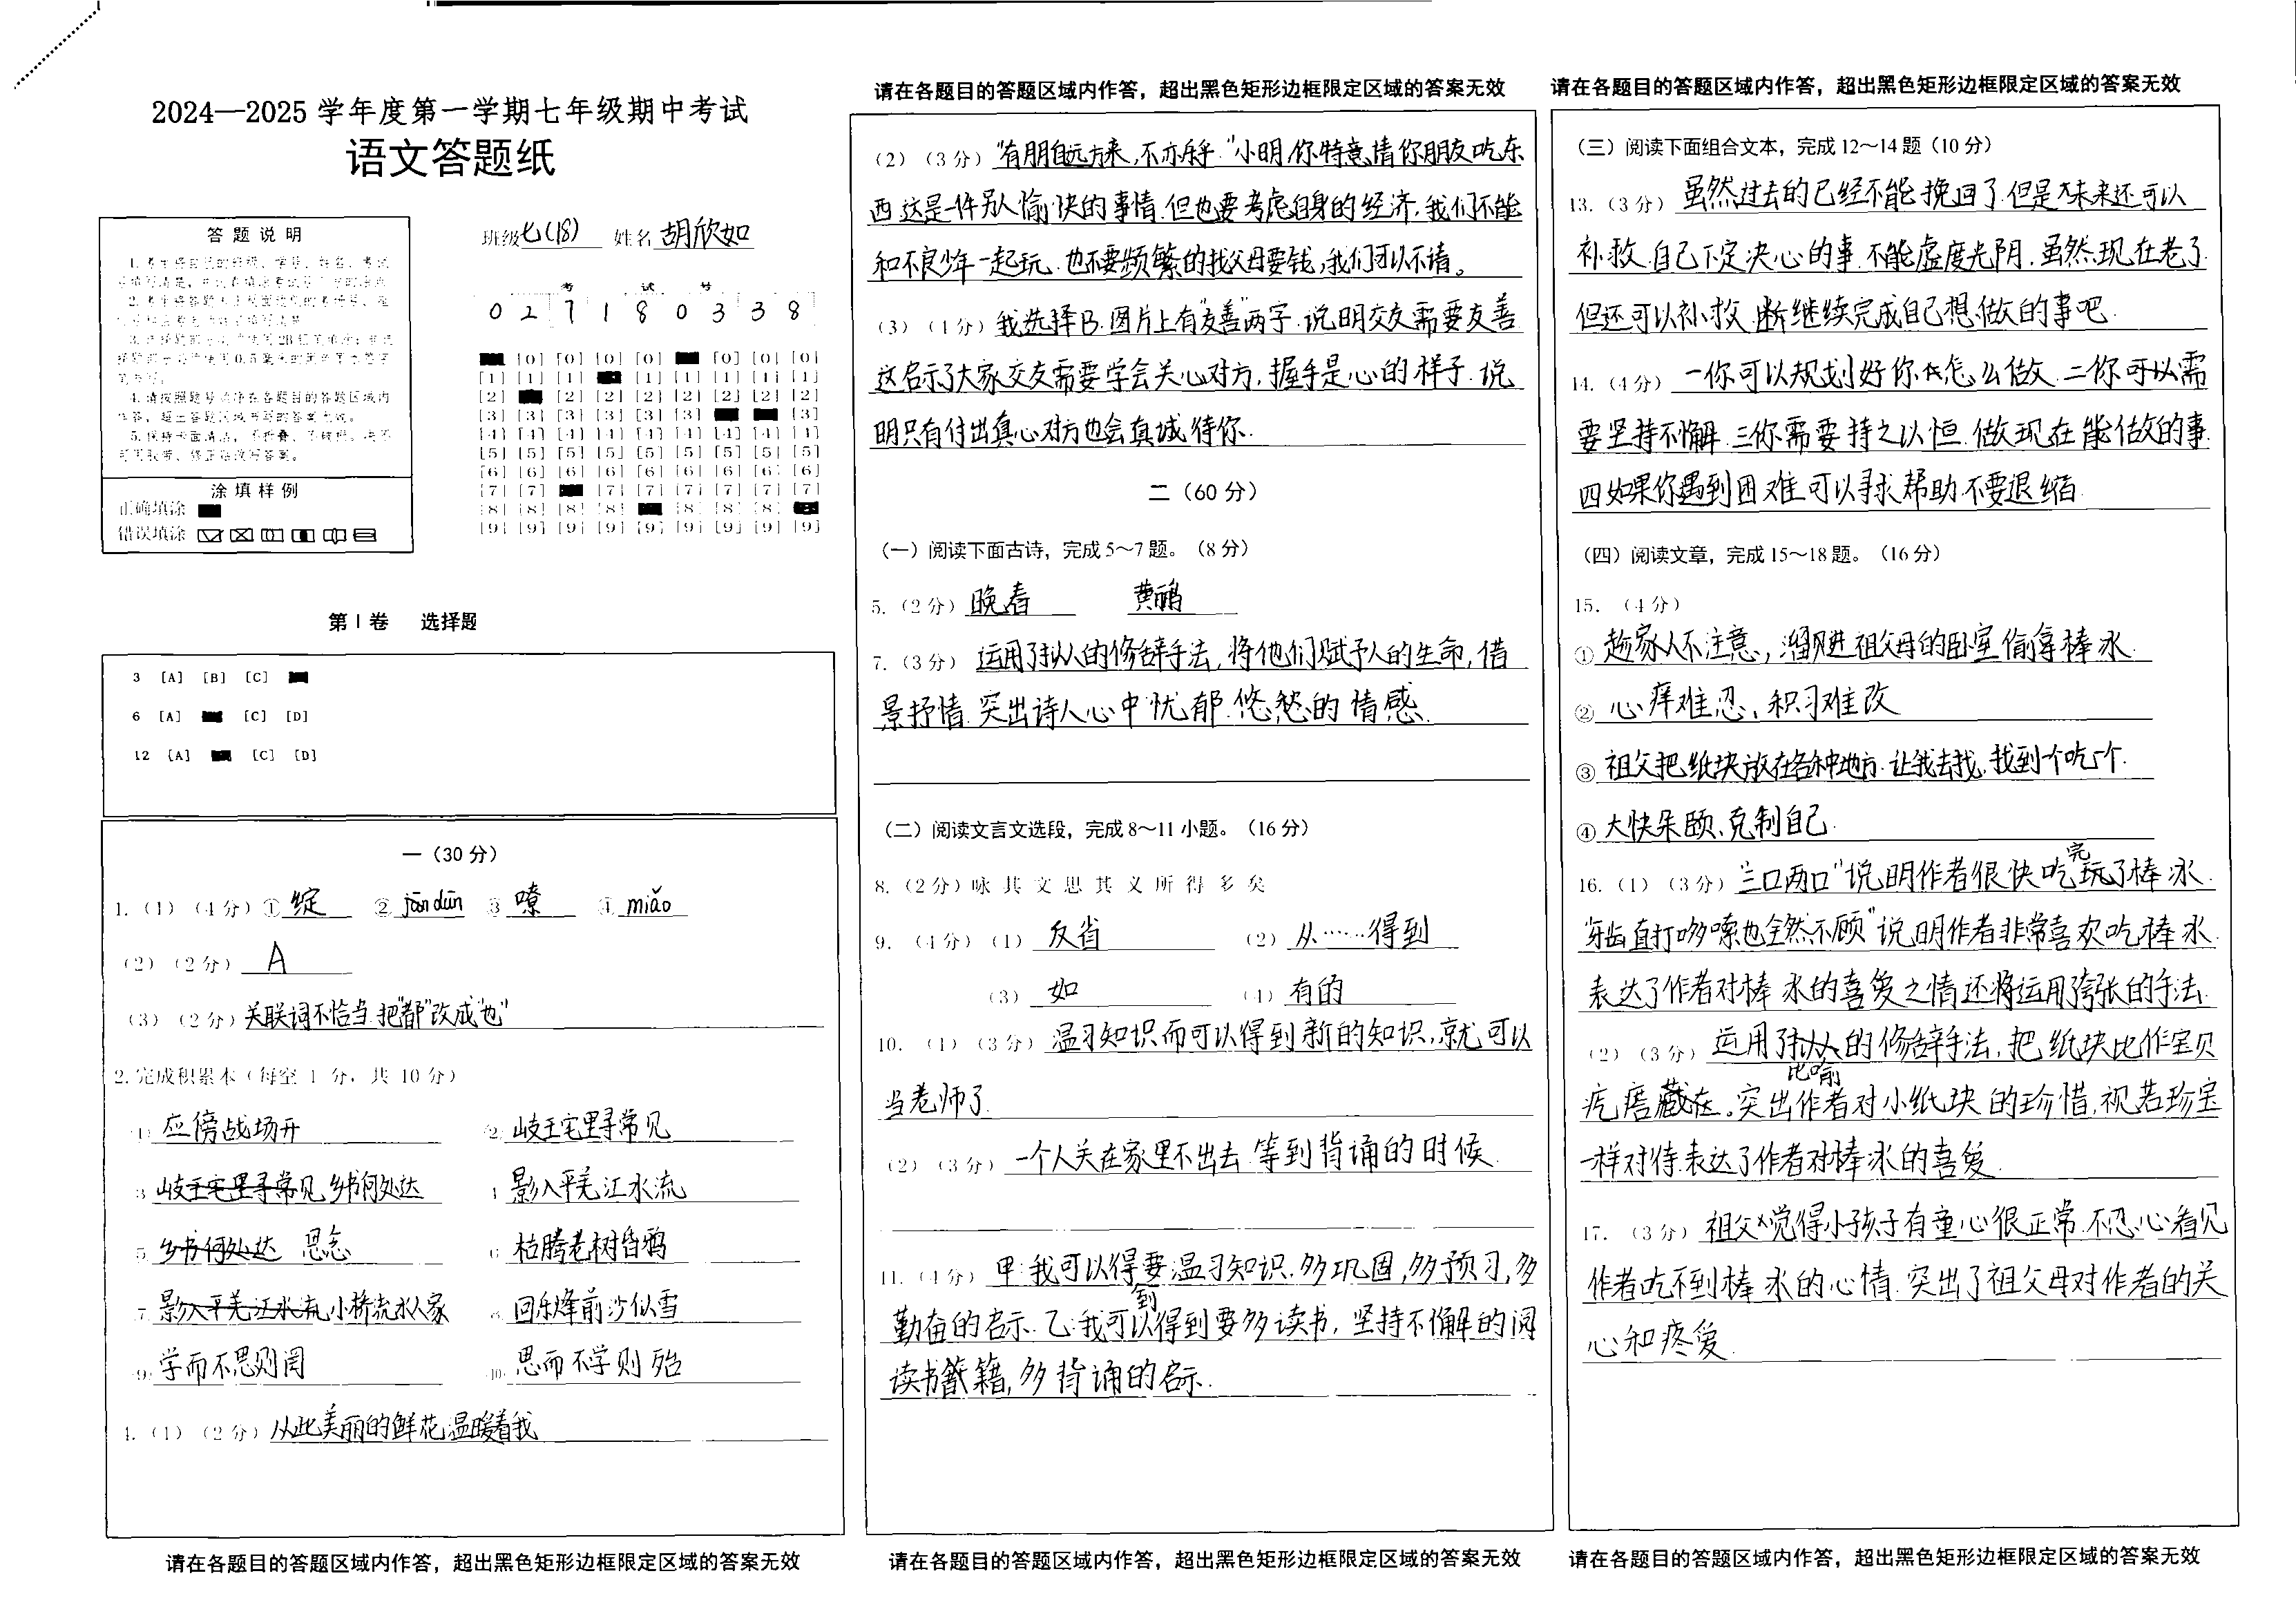 2024—2025 学年度第一学期七年级期中考试
语文答题纸
答 题 说 明
涂 填 样 例
正确填涂
错误填涂
班级 七(18) 姓名 胡欣如
考 试 号
0 2 7 1 8 0 3 3 8
[0] [0] [0] [0] [0] [0] [0]
[1] [1] [1] [1] [1] [1] [1] [1]
[2] [2] [2] [2] [2] [2] [2] [2]
[3] [3] [3] [3] [3] [3] [3]
[4] [4] [4] [4] [4] [4] [4] [4] [4]
[5] [5] [5] [5] [5] [5] [5] [5] [5]
[6] [6] [6] [6] [6] [6] [6] [6] [6]
[7] [7] [7] [7] [7] [7] [7] [7]
[8] [8] [8] [8] [8] [8] [8]
[9] [9] [9] [9] [9] [9] [9] [9] [9]
第 I 卷 选择题
3 [A] [B] [C]
6 [A] [C] [D]
12 [A] [C] [D]
一（30 分）
1.（1）（4 分）① 绽 ② jūn dūn ③ 嘹 ④ miǎo
（2）（2 分） A
（3）（2 分）关联词不恰当.把"都"改成"也"
2.完成积累本（每空 1 分，共 10 分）
(1) 应傍战场开 (2) 岐王宅里寻常见
(3) 岐王宅里寻常见 乡书何处达 (4) 影入平羌江水流
(5) 乡书何处达 思念 (6) 枯腾老树昏鸦
(7) 影入平羌江水流 小桥流水人家 (8) 回乐烽前沙似雪
(9) 学而不思则罔 (10) 思而不学则殆
4.（1）（2 分）从此美丽的鲜花温暖着我
请在各题目的答题区域内作答，超出黑色矩形边框限定区域的答案无效
请在各题目的答题区域内作答，超出黑色矩形边框限定区域的答案无效
（2）（3 分）"有朋自远方来,不亦乐乎."小明,你特意请你朋友吃东
西这是一件另人愉快的事情.但也要考虑自身的经济.我们不能
和不良少年一起玩.也不要频繁的找父母要钱,我们可以不请。
（3）（4分）我选择B.图片上有"友善"两字.说明交友需要友善
这启示了大家交友需要学会关心对方,握手是心的样子.说
明只有付出真心对方也会真诚待你.
二（60 分）
（一）阅读下面古诗，完成 5～7 题。（8 分）
5.（2 分）晚春 黄鹂
7.（3 分）运用了拟人的修辞手法,将他们赋予人的生命,借
景抒情.突出诗人心中忧郁.悠愁的情感.
（二）阅读文言文选段，完成 8～11 小题。（16 分）
8.（2 分）咏 其 文 思 其 义 所 得 多 矣
9.（4分）（1） 反省 （2） 从……得到
（3） 如 （4） 有的
10.（1）（3 分）温习知识而可以得到新的知识,就可以
当老师了.
（2）（3 分）一个人关在家里不出去.等到背诵的时候.
11.（4分）甲:我可以得要温习知识.多巩固,多预习,多
到
勤奋的启示.乙:我可以得到要多读书,坚持不懈的阅
读书籍,多背诵的启示.
请在各题目的答题区域内作答，超出黑色矩形边框限定区域的答案无效
请在各题目的答题区域内作答，超出黑色矩形边框限定区域的答案无效
（三）阅读下面组合文本，完成 12～14 题（10 分）
13.（3 分）虽然过去的已经不能挽回了.但是未来还可以
补救.自己下定决心的事.不能虚度光阴.虽然现在老了.
但还可以补救.断继续完成自己想做的事吧.
14.（4 分）一你可以规划好你怎么做.二你可以需
要坚持不懈.三你需要持之以恒.做现在能做的事.
四如果你遇到困难.可以寻求帮助.不要退缩.
（四）阅读文章，完成 15～18 题。（16 分）
15.（4 分）
① 趁家人不注意,溜进祖父母的卧室偷享棒冰.
② 心痒难忍、积习难改
③ 祖父把纸块放在各种地方.让我去找.找到一个吃一个.
④ 大快朵颐、克制自己.
完
16.（1）（3 分）"三口两口"说明作者很快吃玩了棒冰.
"牙齿直打哆嗦也全然不顾"说明作者非常喜欢吃棒冰.
表达了作者对棒冰的喜爱之情还将运用夸张的手法.
（2）（3 分）运用了拟人的修辞手法,把纸块比作宝贝
比喻
疙瘩藏在。突出作者对小纸块的珍惜,视若珍宝
一样对待.表达了作者对棒冰的喜爱.
17.（3 分）祖父觉得小孩子有童心很正常.不忍心看见
作者吃不到棒冰的心情.突出了祖父母对作者的关
心和疼爱.
请在各题目的答题区域内作答，超出黑色矩形边框限定区域的答案无效